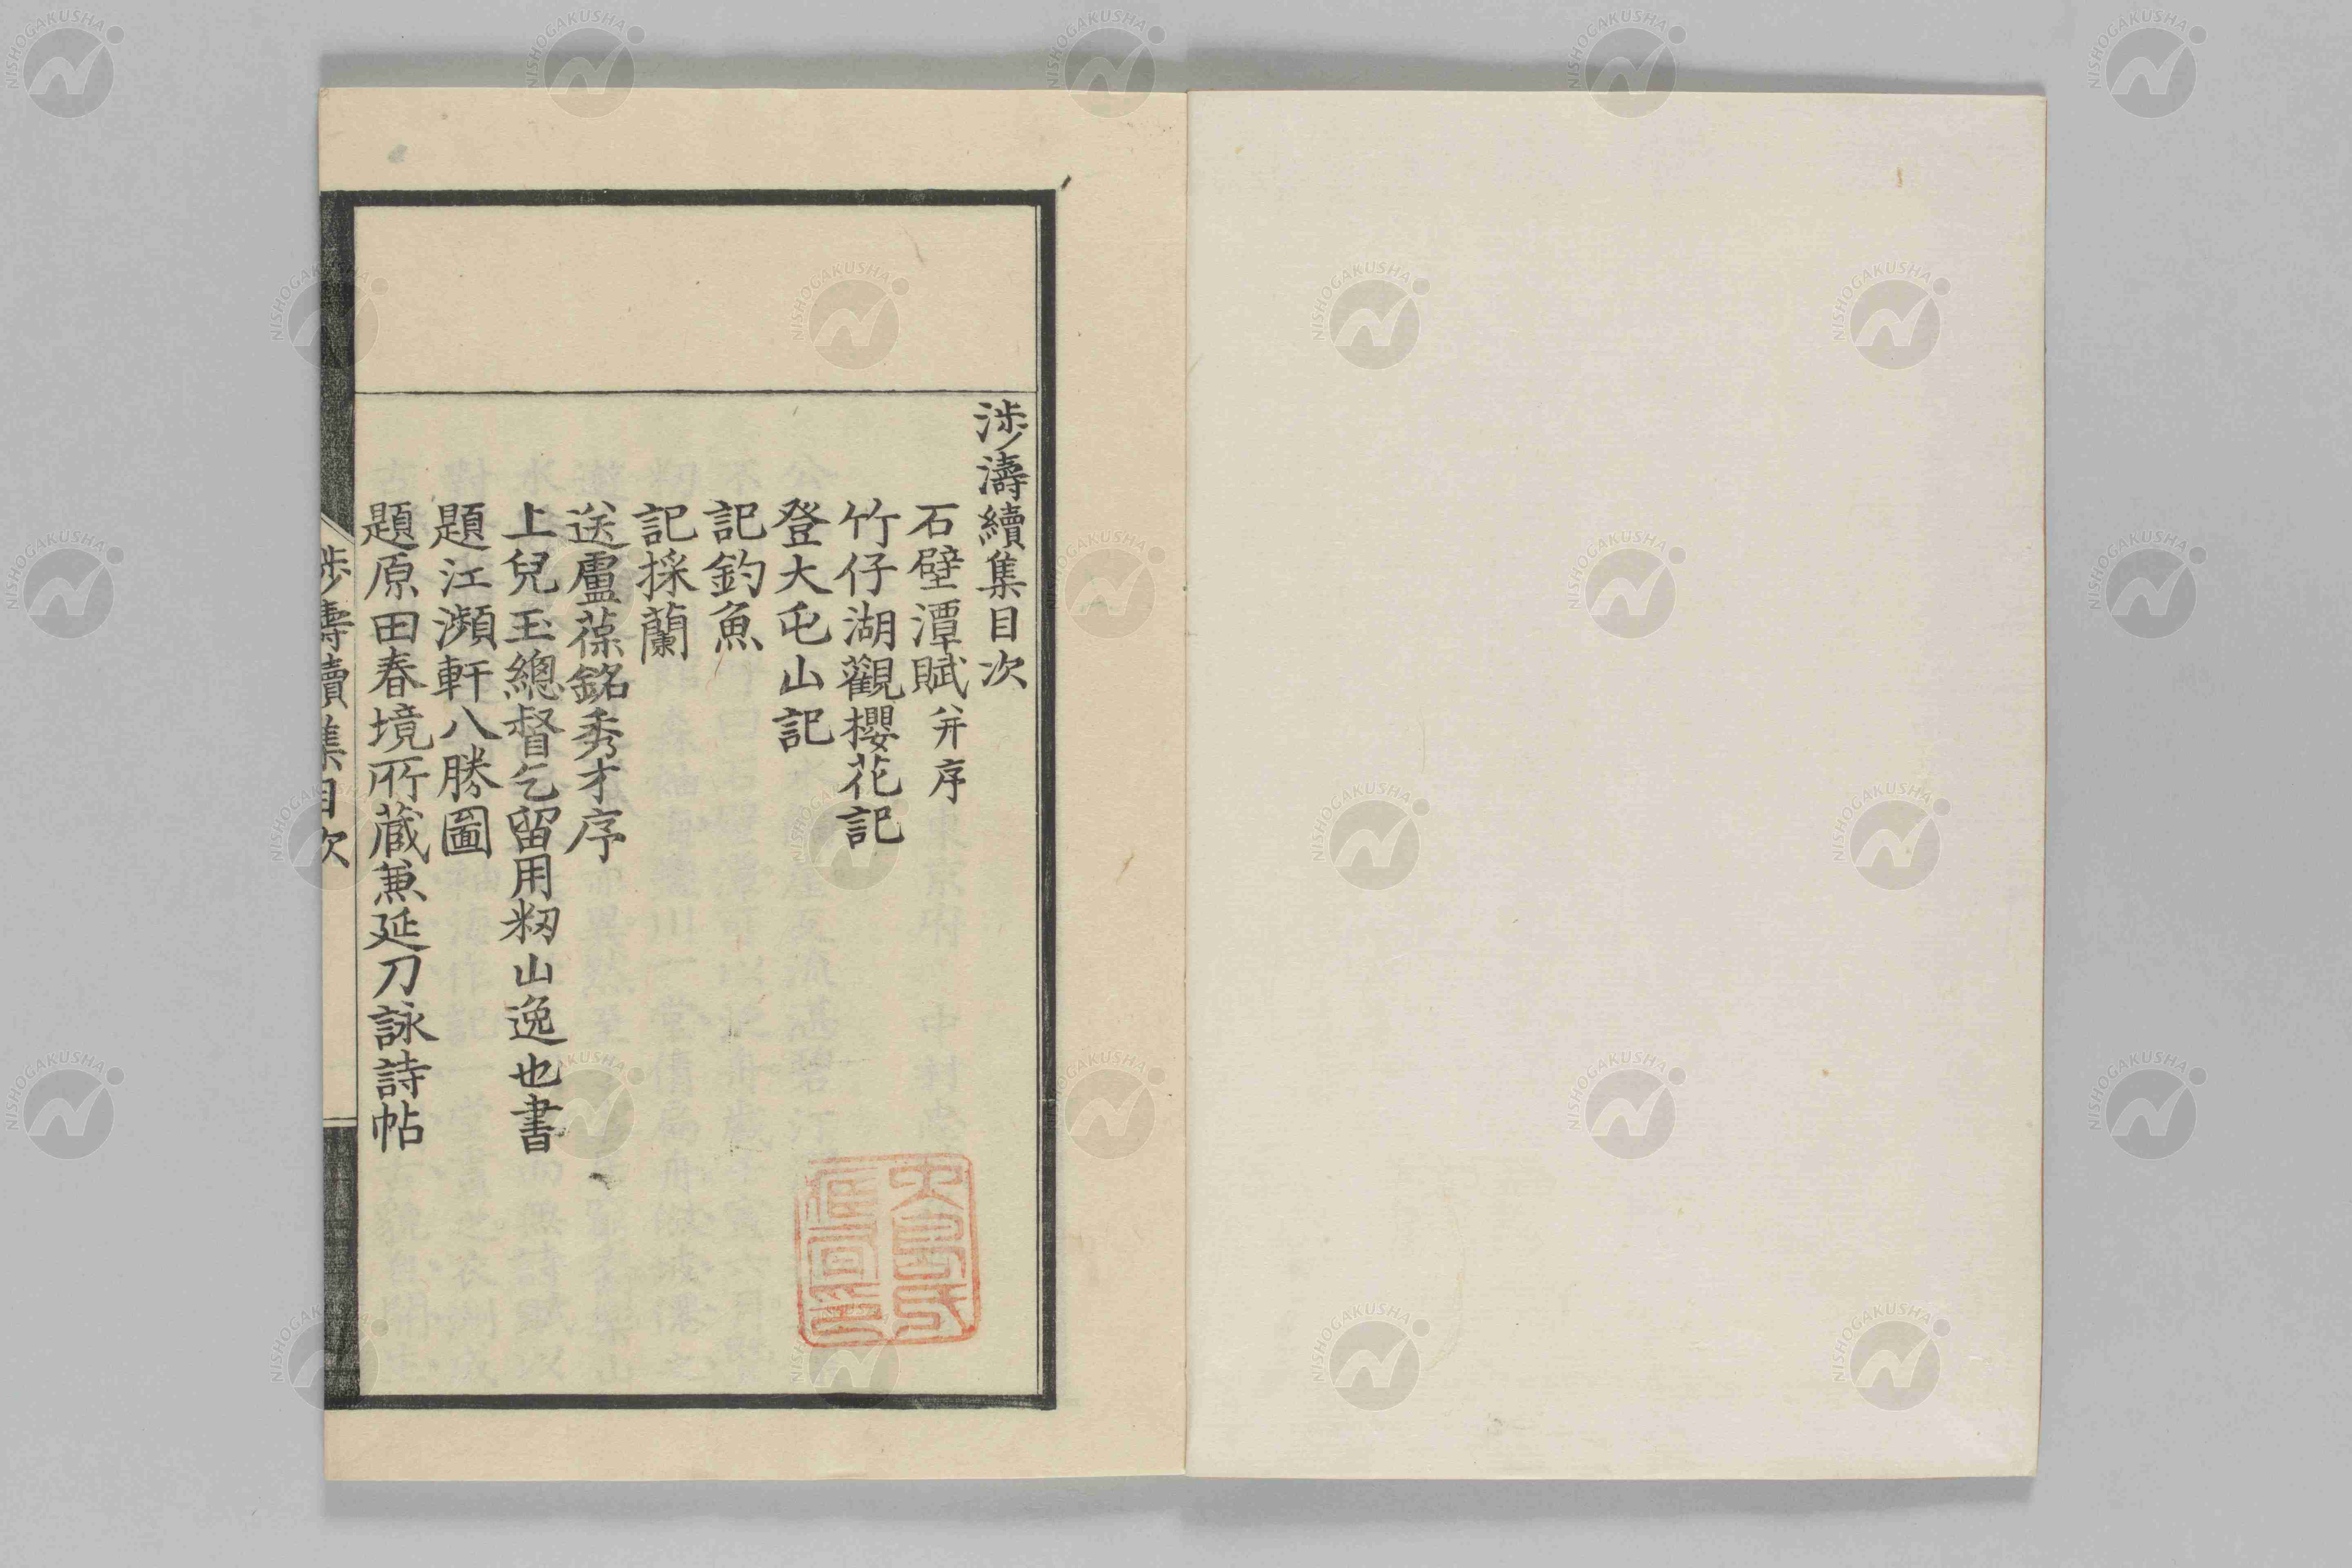 涉濤續集目次
石壁潭賦并序
竹仔湖觀櫻花記
登大屯山記
記釣魚
記採蘭
送盧葆銘秀才序
上兒玉總督乞留用籾山逸也書
題江瀕軒八勝圖
題原田春境所藏兼延刀詠詩帖
涉濤續集目次
NISHOGAKUSHA